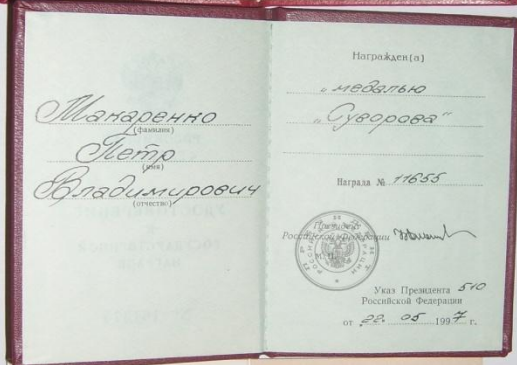 Макаренко
(фамилия)
Петр
(имя)
Владимирович
(отчество)
Награжден(а)
„медалью
„Суворова"
Награда № 11655
Президент
Российской Федерации
М.П.
Указ Президента 510
Российской Федерации
от 22. 05 1997 г.